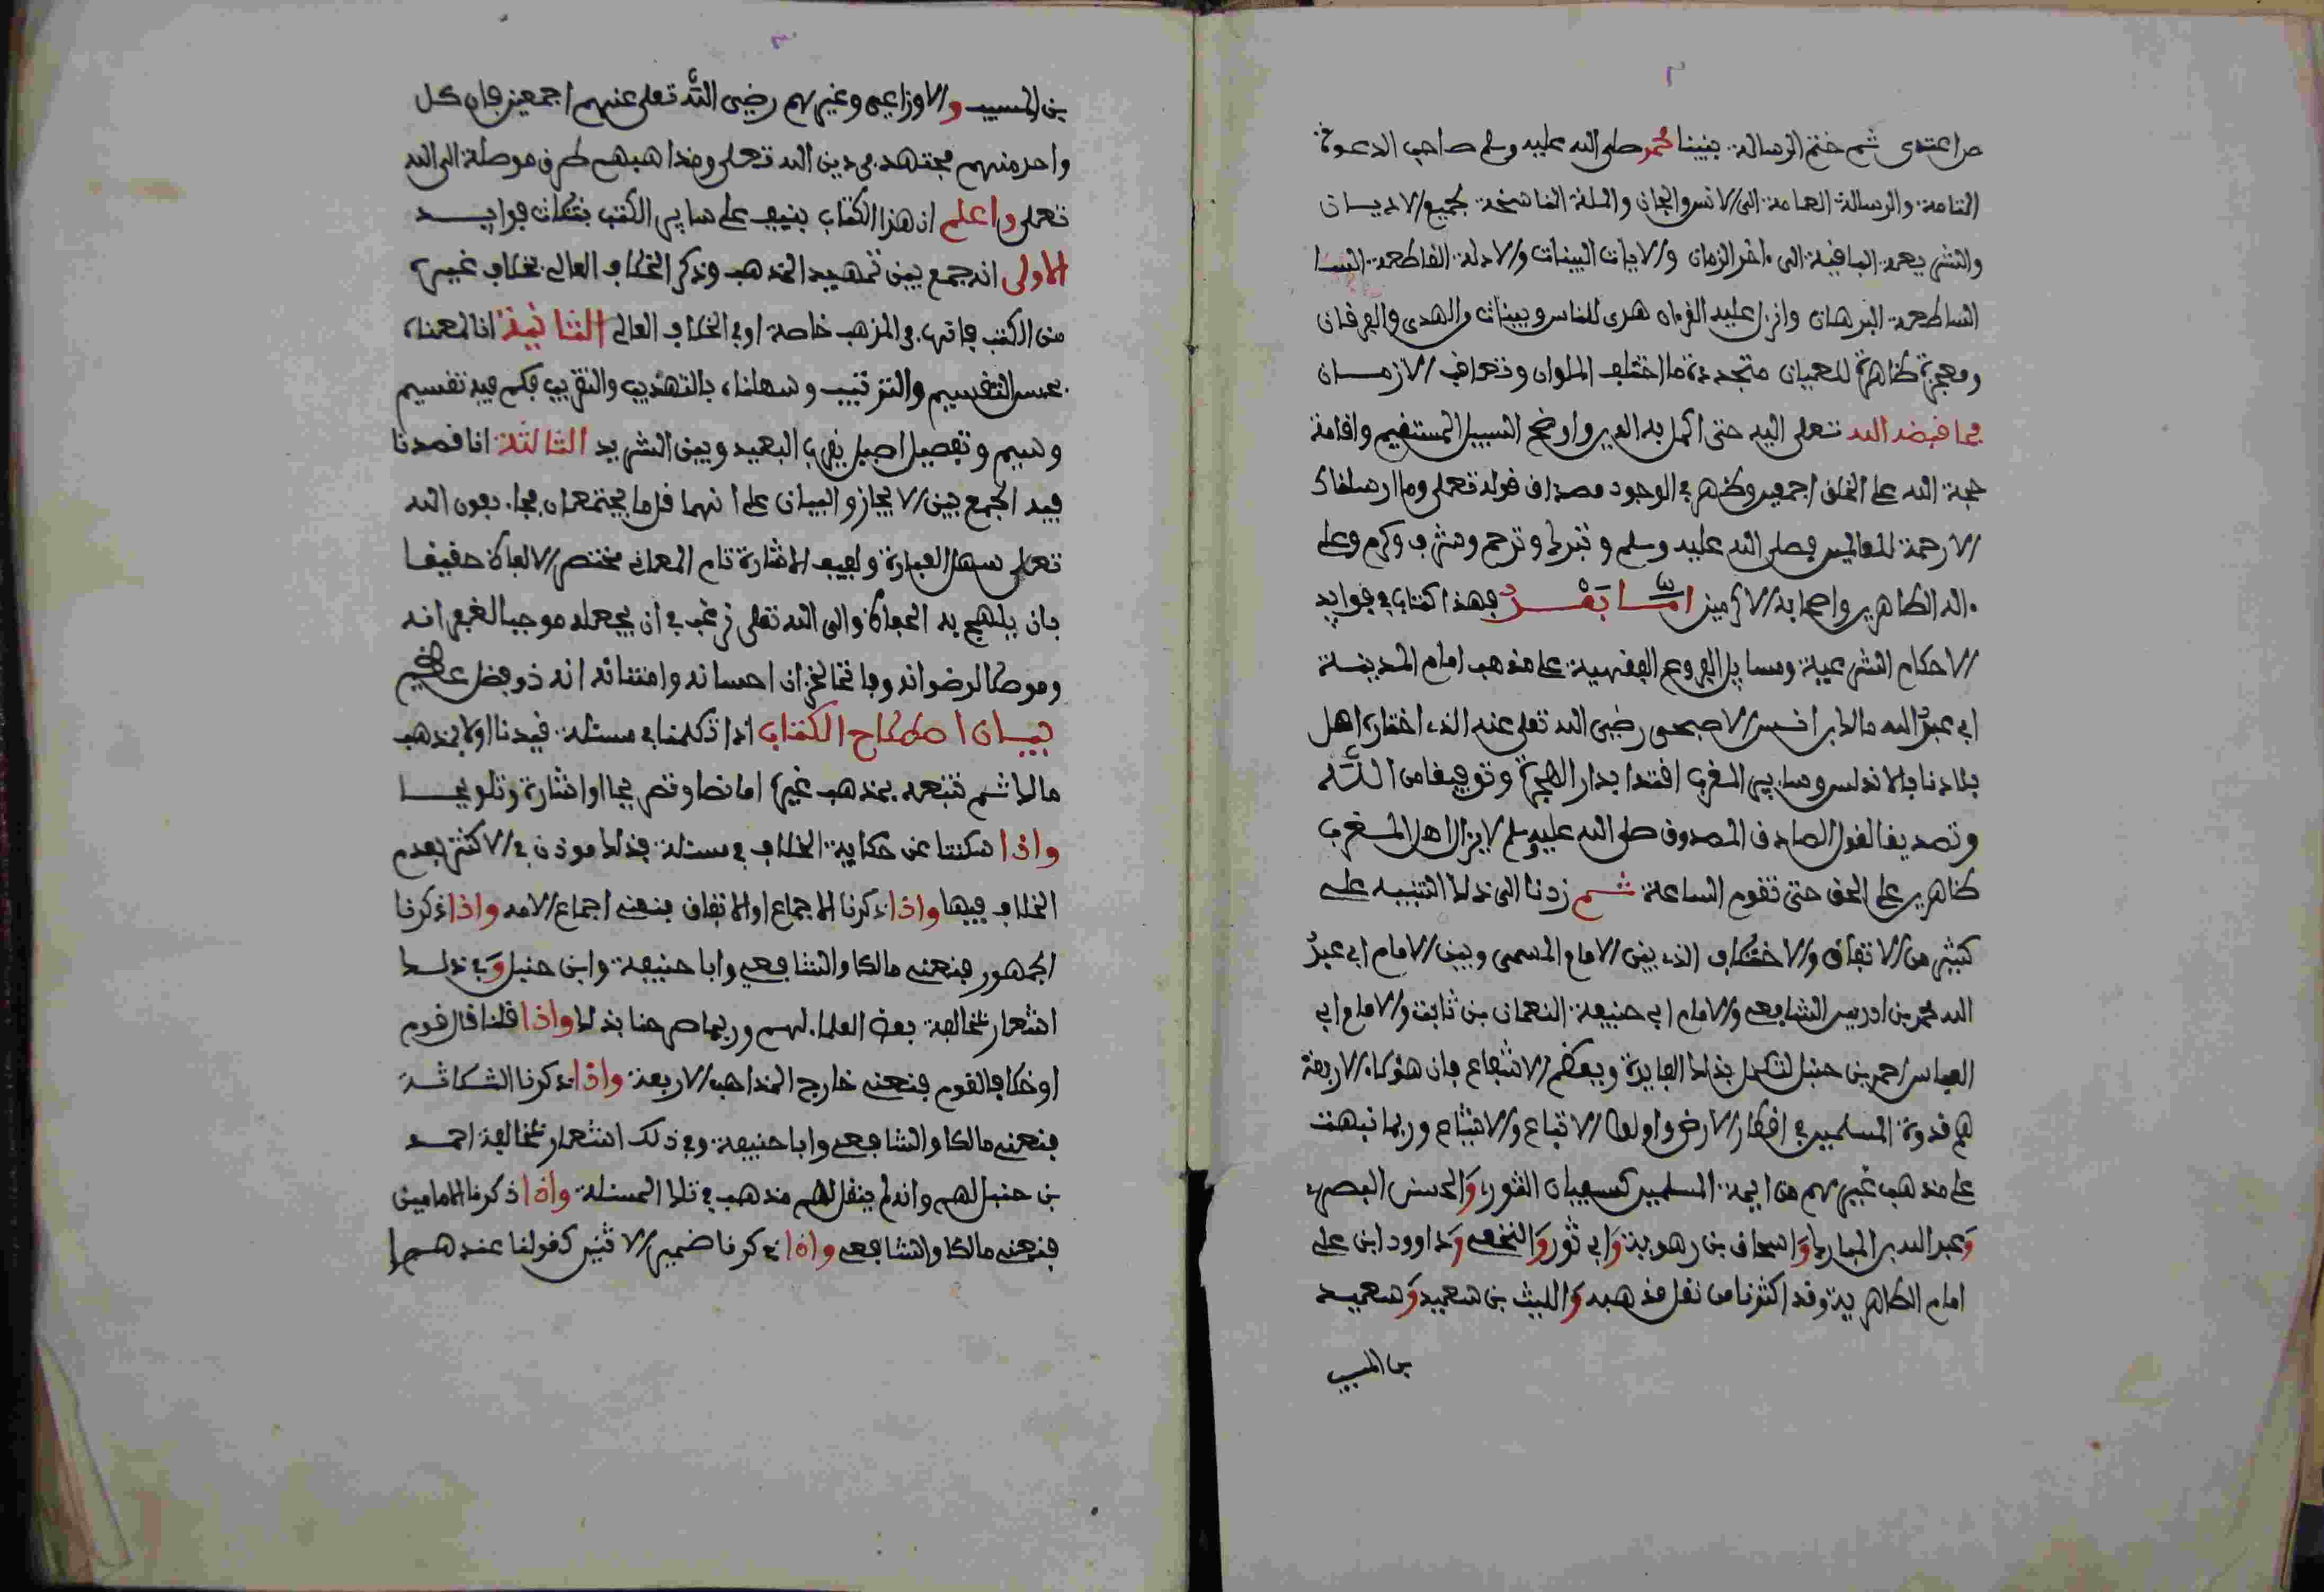 من اعتدى ثم ختم الرسالة بنبينا محمد صلى الله عليه وسلم صاحب الدعوة
التامة والرسالة العامة الى الانس والجان والملة الناسخة لجميع الاديان
والشريعة الباقية الى ءاخر الزمان والايات البينات والادلة القاطعة
الساطعة البرهان وانزل عليه القرءان هدى للناس وبينات من الهدى والفرقان
ومعجزة ظاهرة للعيان متجددة ما اختلف الملوان وتعاقب الازمان
فما قبضه الله تعلى اليه حتى اكمل به الدين واوضح السبيل المستقيم واقامة
حجة الله على الخلق اجمعين وظهر في الوجود مصداق قوله تعلى وما ارسلناك
الا رحمة للعالمين فصلى الله عليه وسلم وتبرك وترحم وشرف وكرم وعلى
ءاله الطاهرين واصحابه الاكرمين اما بعد فهذا كتاب في فوايد
الاحكام الشرعية ومسايل الفروع الفقهية على مذهب امام المدينة
ابي عبد الله مالك بن انس الاصبحي رضي الله تعلى عنه الذي اختاره اهل
بلادنا بالاندلس وساير المغرب اقتدا بدار الهجرة وتوفيقا من الله
وتصديقا لقول الصادق المصدوق صلى الله عليه وسلم لا يزال اهل المغرب
ظاهرين على الحق حتى تقوم الساعة ثم زدنا الى ذلك التنبيه على
كثير من الاتفاق والاختلاف الذي بين الامام المسمى وبين الامام ابي عبد
الله محمد بن ادريس الشافعي والامام ابي حنيفة النعمان بن ثابت والامام ابي
العباس احمد بن حنبل لتكمل بذلك الفايدة ويعظم الانتفاع فان هؤلاء الاربعة
هم قدوة المسلمين في اقطار الارض واولوا الاتباع والاشياع وربما نبهت
على مذهب غيرهم من ايمة المسلمين كسفيان الثوري والحسن البصري
وعبد الله بن المبارك واسحاق بن رهويه وابي ثور والنخعي وداوود ابن علي
امام الظاهرية وقد اكثرنا من نقل مذهبه والليث بن سعيد وسعيد
بن المسيب
بن المسيب والاوزاعي وغيرهم رضي الله تعلى عنهم اجمعين فان كل
واحد منهم مجتهد في دين الله تعلى ومذاهبهم طرق موصلة الى الله
تعلى واعلم ان هذا الكتاب ينيف على ساير الكتب بثلاث فوايد
الاولى انه جمع بين تمهيد المذهب وذكر الخلاف العالي بخلاف غيره
من الكتب فانها في المذهب خاصة او في الخلاف العالي الثانية انا لمحناه
بحسن التقسيم والترتيب وسهلناه بالتهذيب والتقريب فكم فيه تقسيم
وسيم وتفصيل اصيل يقرب البعيد ويبين الشريد الثالثة انا قصدنا
فيه الجمع بين الايجاز والبيان على انهما قل ما يجتمعان فجاء بعون الله
تعلى سهل العبارة ولطيف الاشارة تام المعاني مختصر الالفاظ حقيقا
بان يلهج به الحفاظ والى الله تعلى نرغب في ان يجعله موجبا لغفرانه
وموصلا لرضوانه وفاتحا لخزائن احسانه وامتنانه انه ذو فضل عظيم
بيان اصطلاح الكتاب اذا تكلمنا في مسئلة قيدنا اولا بمذهب
مالك ثم نتبعه بمذهب غيره اما نصا وتصريحا او اشارة وتلويحا
واذا سكتنا عن حكاية الخلاف في مسئلة فذلك موذن في الاكثر بعدم
الخلاف فيها واذا ذكرنا الاجماع او الاتفاق فنعني اجماع الامه واذا ذكرنا
الجمهور فنعني مالكا والشافعي وابا حنيفة وابن حنبل وفي ذلك
اشعار بمخالفة بعض العلماء لهم وربما صرحنا بذلك واذا قلنا قال قوم
او خلافا لقوم فنعني خارج المذاهب الاربعة واذا ذكرنا الثلاثة
فنعني مالكا والشافعي وابا حنيفة وفي ذلك اشعار بمخالفة احمد
بن حنبل لهم وانه لم ينقل لهم مذهب في تلك المسئلة واذا ذكرنا الامامين
فنعني مالكا والشافعي واذا ذكرنا ضمير الاثنين كقولنا عندهما